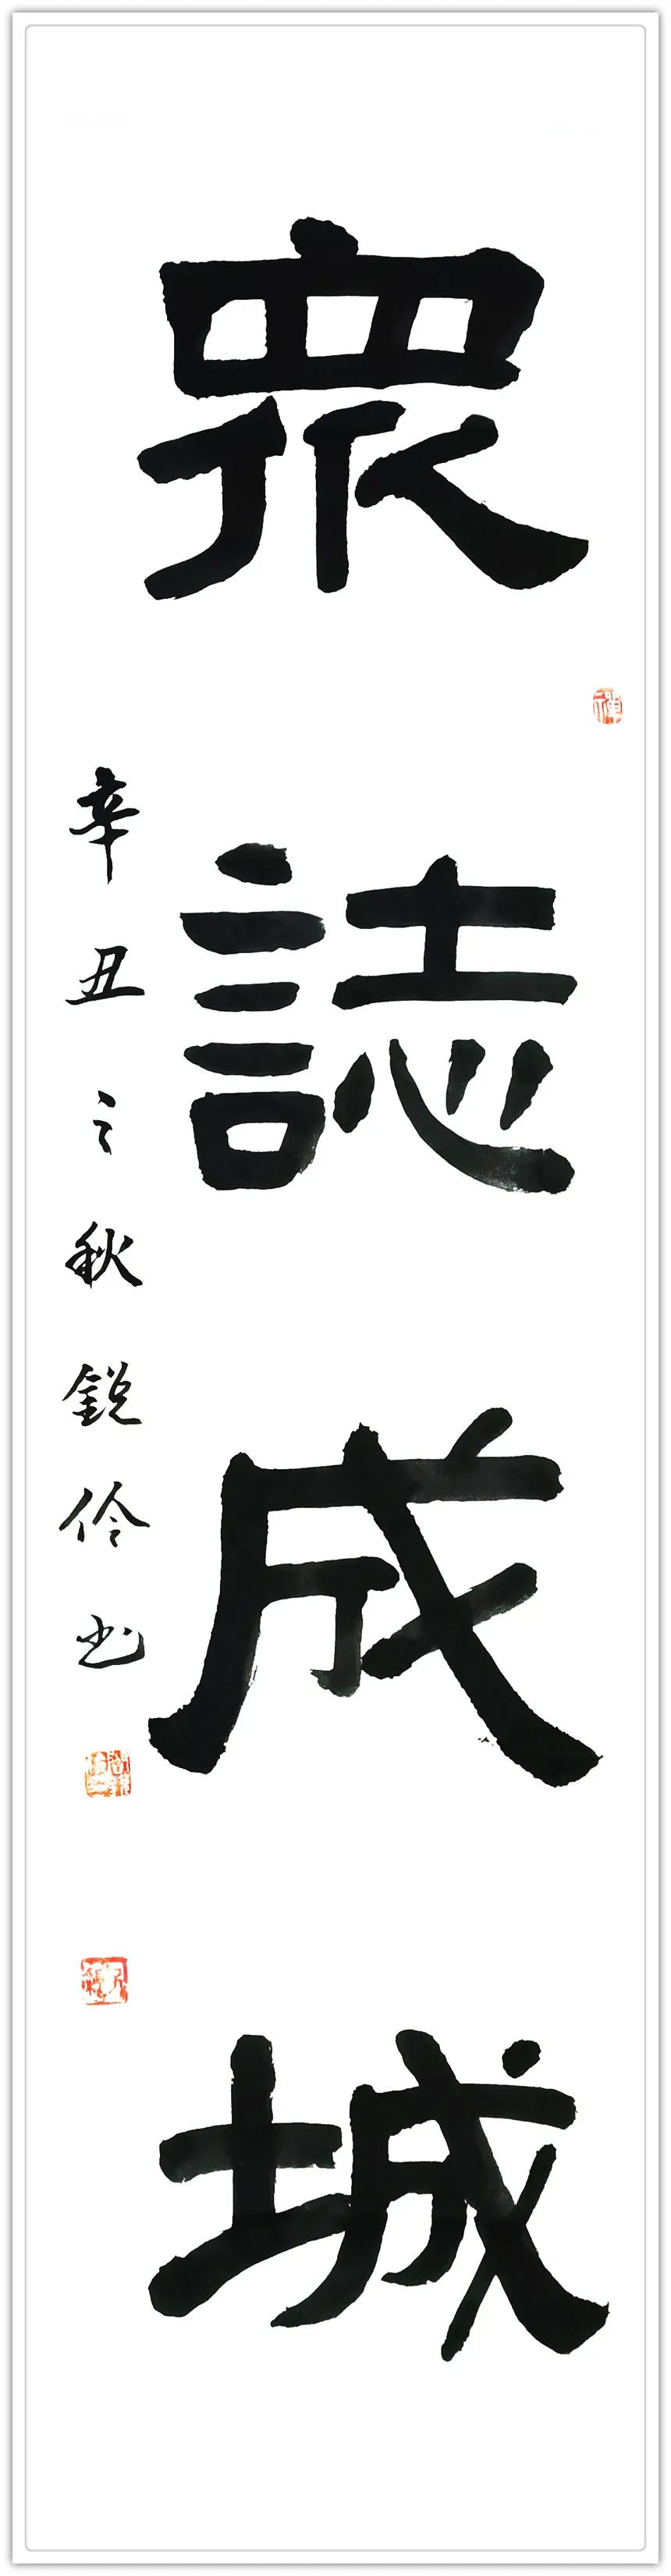 眾誌成城
辛丑之秋銳伶书